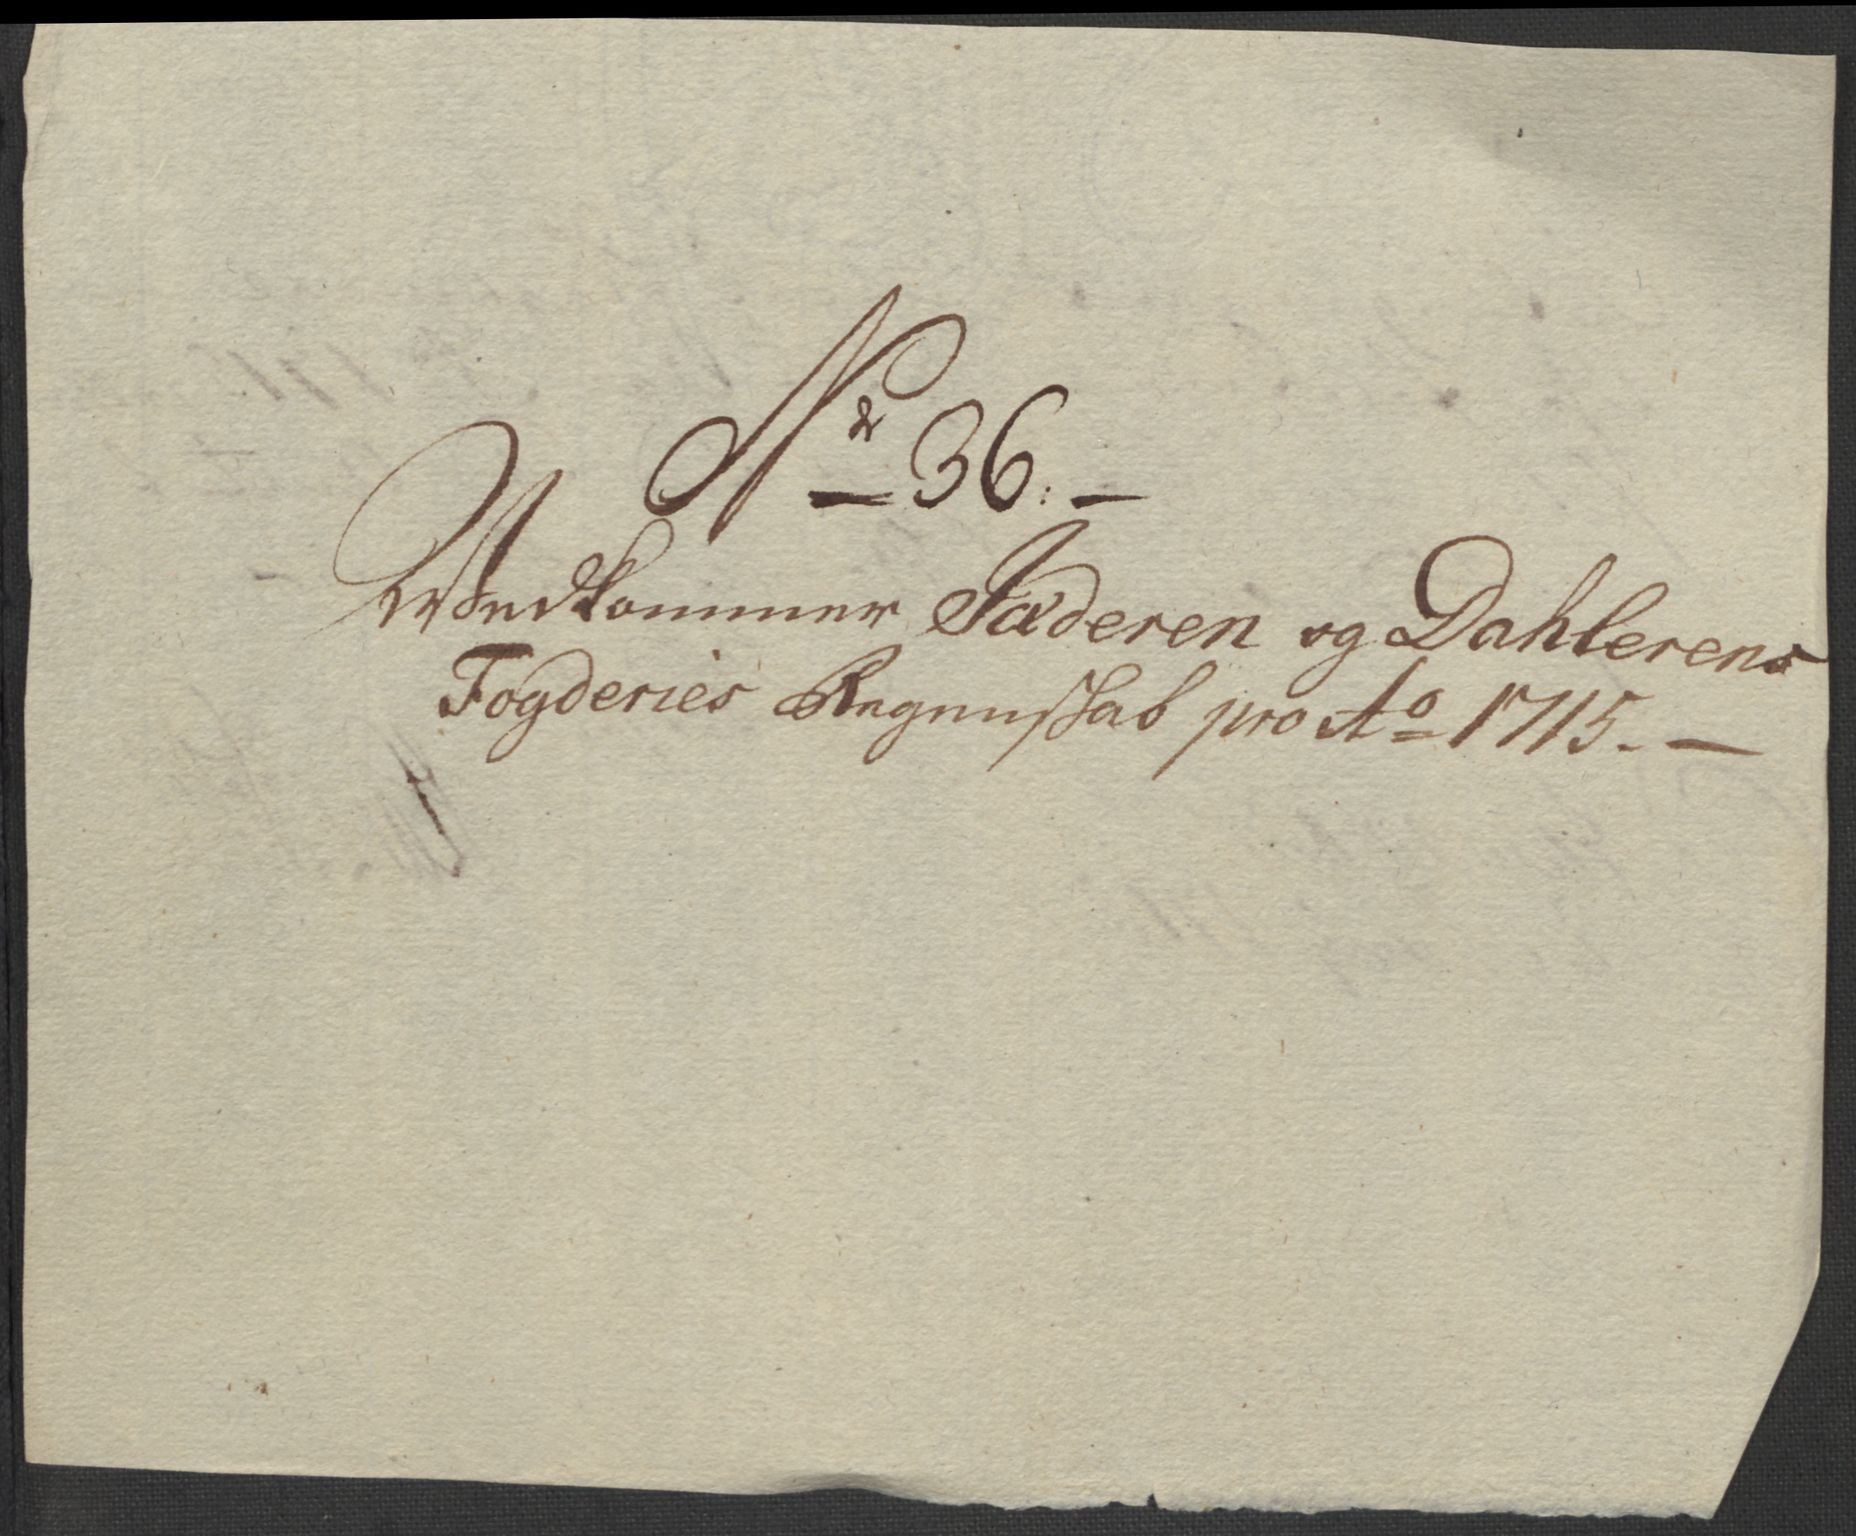 Nr 36. —
Vedkommer Jæderen og Dahlerens
Fogderies Regenskab pro Ao 1715. —